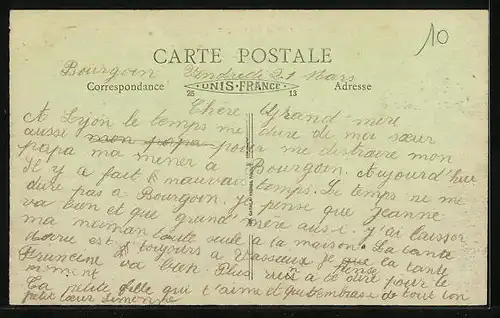 10
CARTE POSTALE
Bourgoin Vendredi 21 Mars
Correspondance UNIS-FRANCE Adresse
25 13
Chère Grand-mère
A Lyon le temps me dure de moi sœur
aussi mon papa pour me distraire mon
papa ma mener a Bourgoin. Aujourd'hui
Il y a fait mauvais temps. Le temps ne me
dure pas a Bourgoin. J'y pense que Jeanne
va bien et que grand mère aussi. J'ai laisser
ma maman toute seule a la maison. La tante
est toujours a Vasseux je que la tante
va bien. Plus rien a te dire pour le
moment
Ta petite fille qui t'aime et qui t'embrasse de tout son
petit cœur Simonne